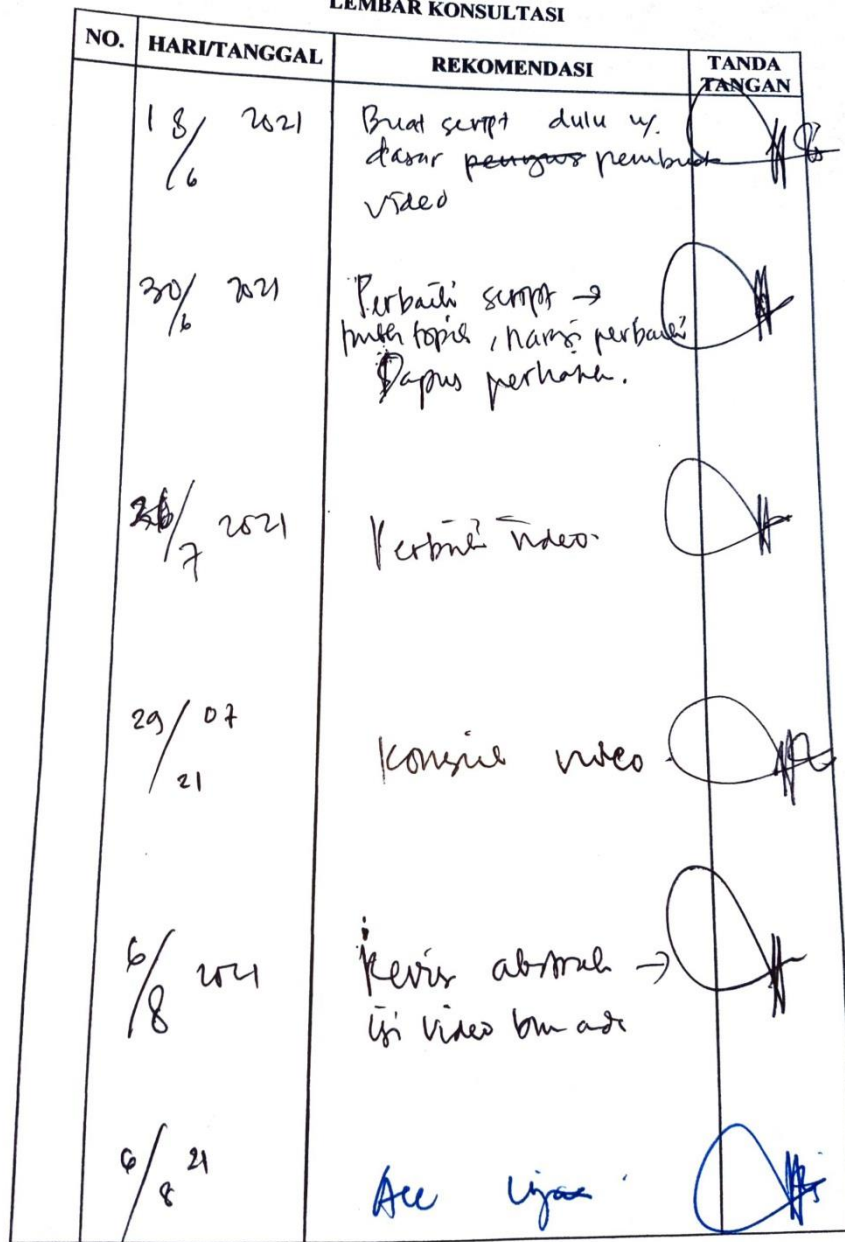 LEMBAR KONSULTASI
NO. HARI/TANGGAL REKOMENDASI TANDA TANGAN
18/6 2021 Buat script dulu u/.
dasar pembuat
video
30/6 2021 Perbaiki script →
topic, narasi perbaiki
Dapus
/7 2021 Perbaiki video.
29/07 21 Konsul video
6/8 2021 Revisi abstrak →
isi video blm ada
6/8 21 Acc Ujian.